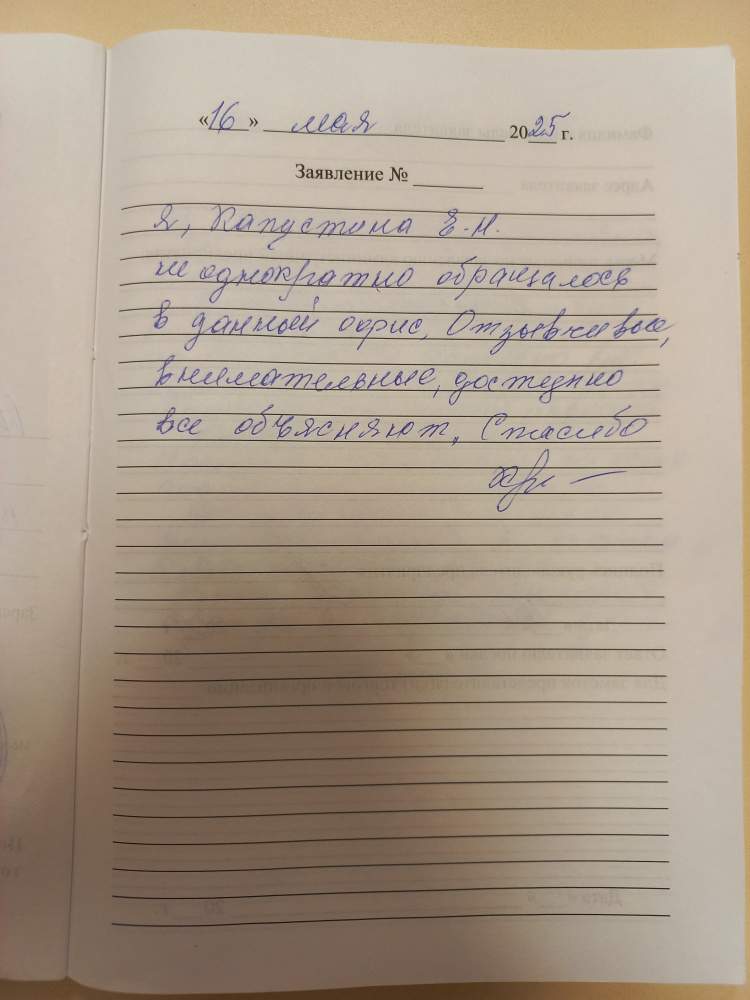 «16» мая 2025 г.
Заявление №
Я, Капустина Е.Н.
не однократно обращалось
в данный оофис. Отзывчивые,
внимательные, доступно
все объясняют. Спасибо